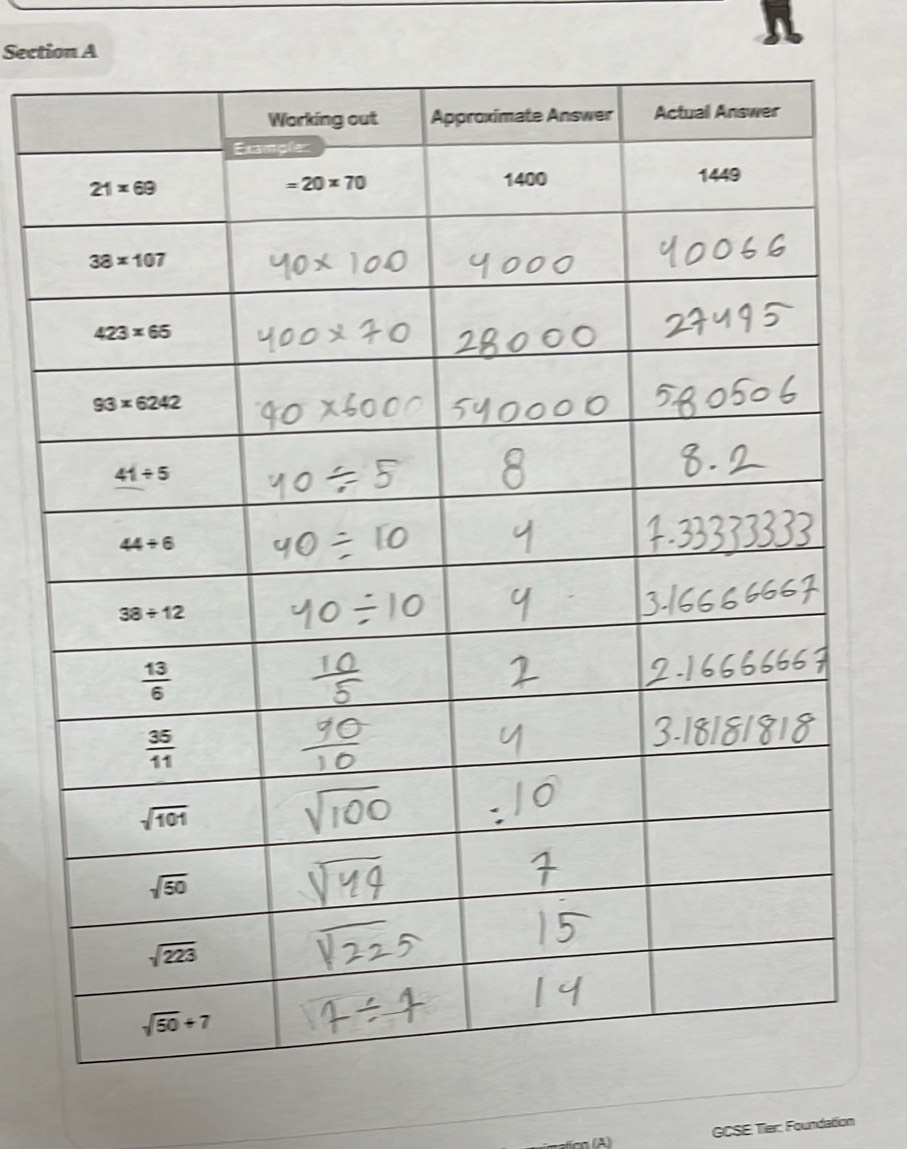 Section A
Working out Approximate Answer Actual Answer
Example:
21 × 69 = 20 × 70 1400 1449
38 × 107 40 × 100 4000 40066
423 × 65 400 × 70 28000 27495
93 × 6242 90 × 6000 540000 580506
41 ÷ 5 40 ÷ 5 8 8.2
44 ÷ 6 40 ÷ 10 4 7.33333333
38 ÷ 12 40 ÷ 10 4 3.16666667
13/6 10/5 2 2.16666667
35/11 40/10 4 3.18181818
√101 √100 :10
√50 √49 7
√223 √225 15
√50 ÷ 7 7 ÷ 7 14
(A) GCSE Tier: Foundation